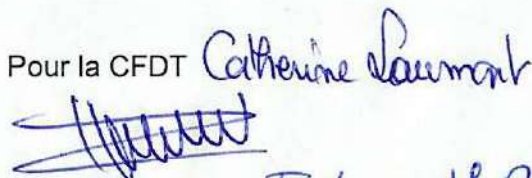 Pour la CFDT Catherine Laumont